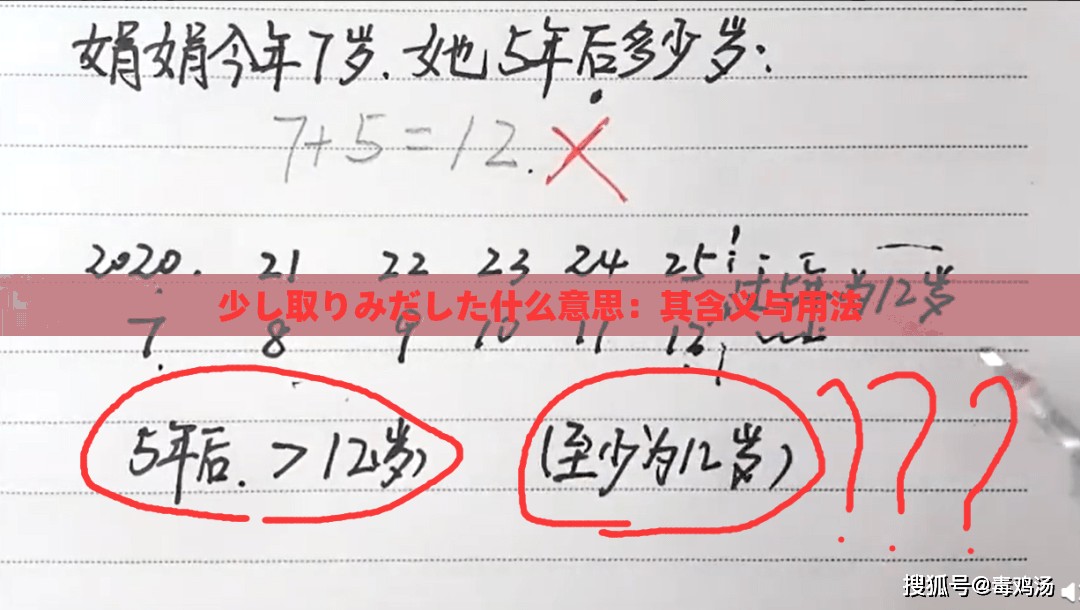 娟娟今年7岁.她5年后多少岁:
7+5=12.
2020. 21 22 23 24 25
为12岁
少し取りみだした什么意思：其含义与用法
7 8 9 10 11 12
5年后.>12岁)
(至少为12岁)
???
搜狐号@毒鸡汤